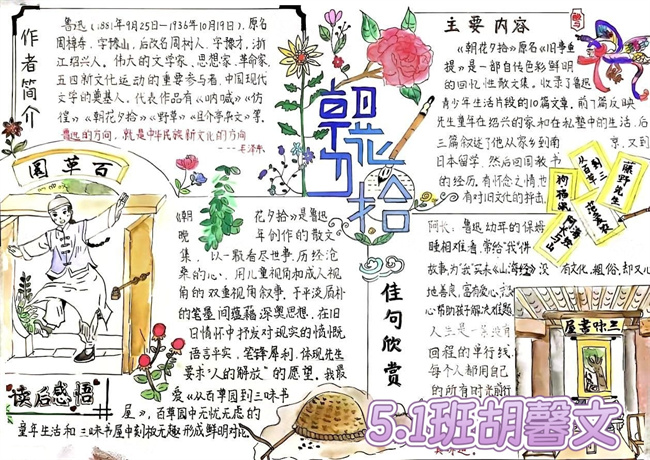 作者简介
鲁迅(1881年9月25日—1936年10月19日),原名
周樟寿,字豫山,后改名周树人,字豫才,浙
江绍兴人。伟大的文学家、思想家、革命家、
五四新文化运动的重要参与者,中国现代
文学的奠基人。代表作品有《呐喊》《彷
徨》《朝花夕拾》《野草》《且介亭杂文》等。
鲁迅的方向,就是中华民族新文化的方向
——毛泽东
朝花夕拾
主要内容
《朝花夕拾》原名《旧事重
提》是一部自传色彩鲜明
的回忆性散文集,收录了鲁迅
青少年生活片段的10篇文章。前7篇反映
先生童年在绍兴的家和在私塾中的生活,后
三篇叙述了他从家乡到南京,又到
日本留学,然后回国教书
的经历,有怀念之情也
有对旧文化的抨击。
从百草到三味
藤野先生
狗猫鼠
范爱农
百草园
《朝花夕拾》是鲁迅
晚年创作的散文
集,以一颗看尽世事、历经沧
桑的心,用儿童视角和成人视
角的双重视角叙事,于平淡质朴
的笔墨间蕴藉深奥思想,在旧
日情怀中抒发对现实的愤慨,
语言平实,笔锋犀利,体现先生
要求"人的解放"的愿望。我最
爱《从百草园到三味书
屋》,百草园中无忧无虑的
童年生活和三味书屋中刻板无趣形成鲜明对比
读后感悟
佳句欣赏
阿长:鲁迅幼年的保姆
睡相难看,常给"我"讲
故事,为"我"买来《山海经》没有文化、粗俗、却又心
地善良,富有爱心
心帮助孩子解决难题
人生是一条没有
回程的单行线,
每个人都用自己
的所有时光前行
三味書屋
5.1班胡馨文